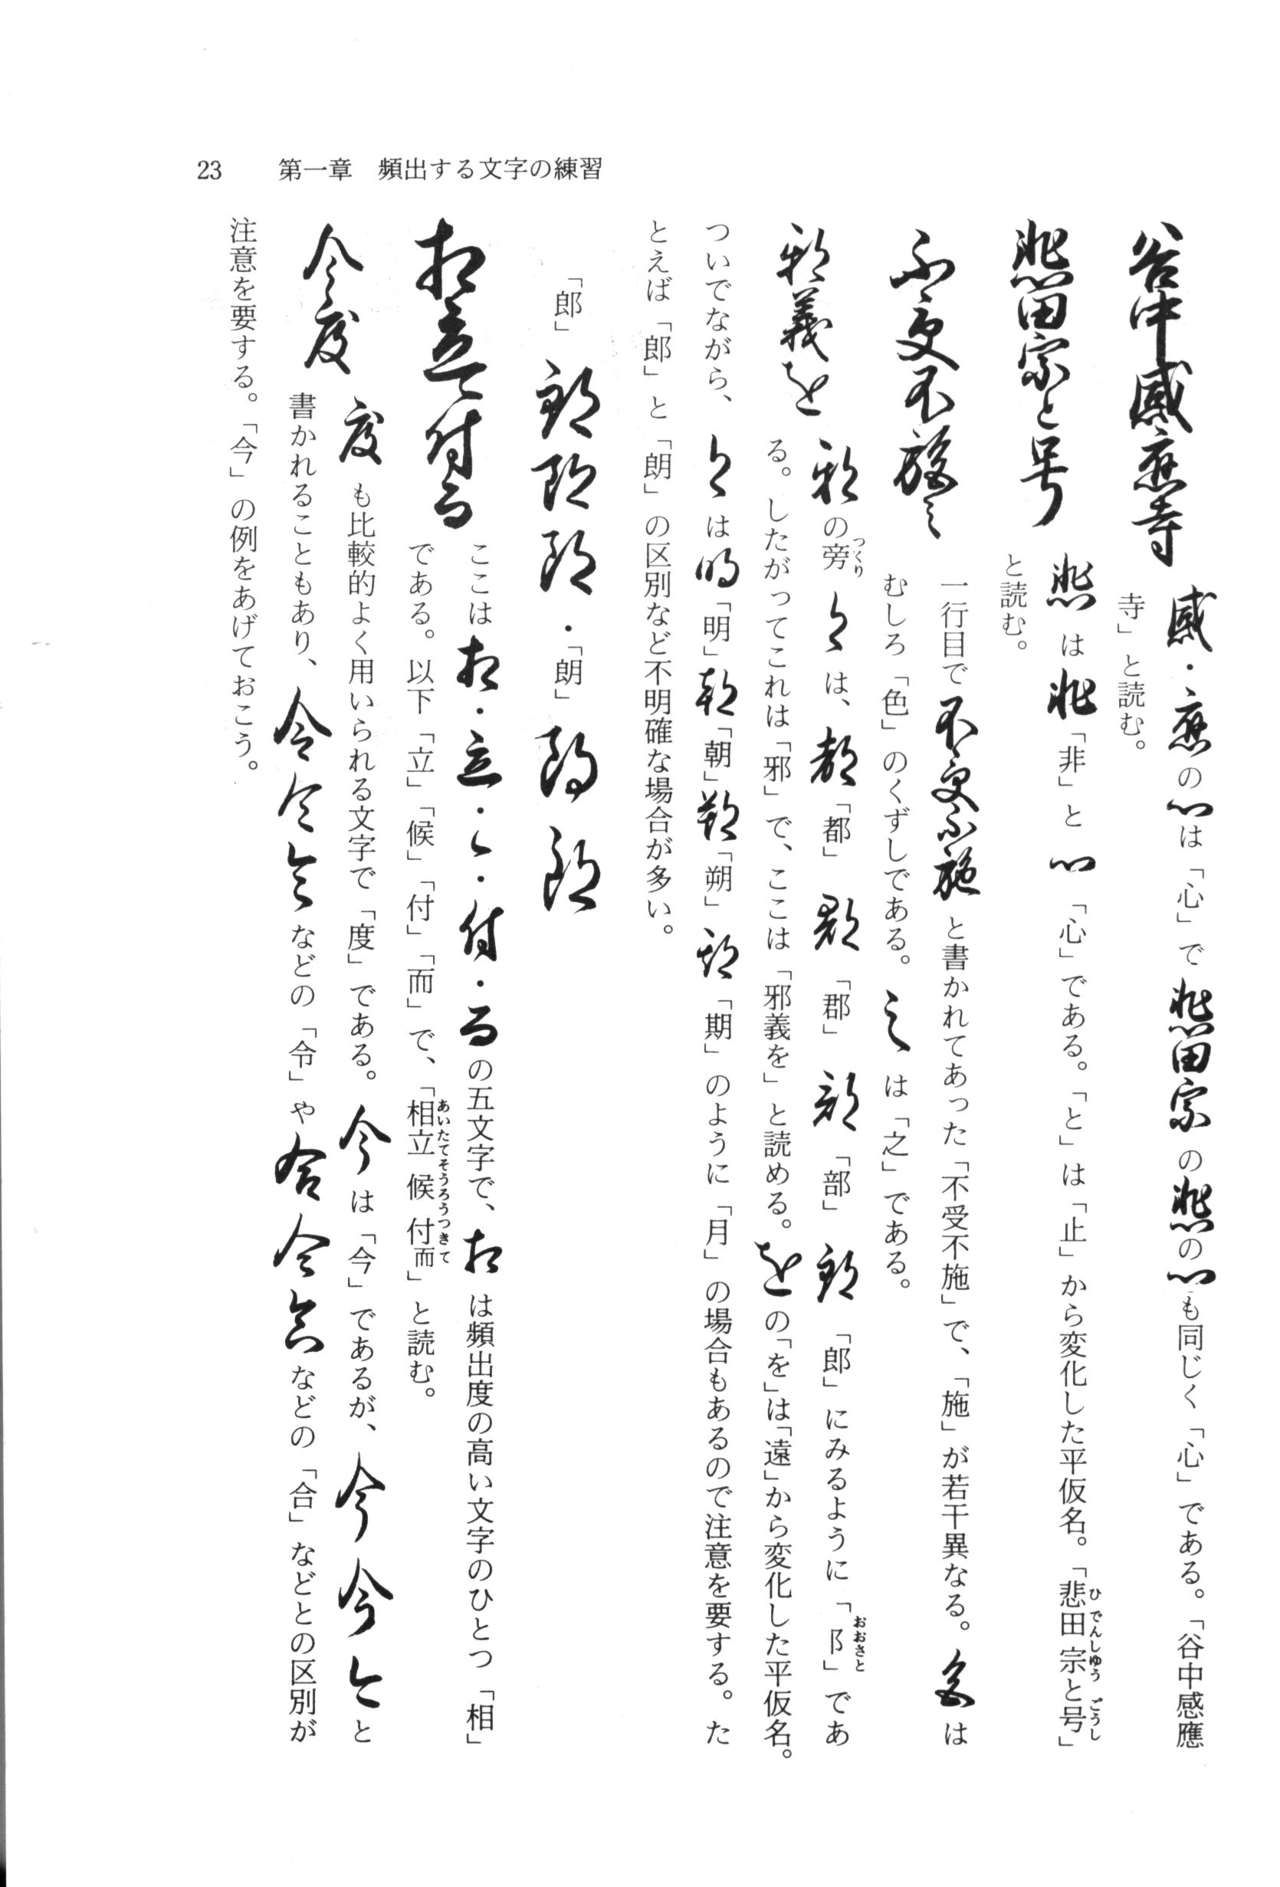 23　第一章　頻出する文字の練習
谷中感應寺
感・應の心は「心」で悲田宗の悲の心も同じく「心」である。「谷中感應
寺」と読む。
悲田宗と号
悲は非「非」と心「心」である。「と」は「止」から変化した平仮名。「悲田宗と号」
と読む。
不受不施之
一行目で不受不施と書かれてあった「不受不施」で、「施」が若干異なる。色は
むしろ「色」のくずしである。之は「之」である。
邪義を
邪の旁阝は、都「都」郡「郡」部「部」郎「郎」にみるように「阝」であ
る。したがってこれは「邪」で、ここは「邪義を」と読める。をの「を」は「遠」から変化した平仮名。
ついでながら、阝は明「明」朝「朝」朔「朔」期「期」のように「月」の場合もあるので注意を要する。た
とえば「郎」と「朗」の区別など不明確な場合が多い。
「郎」郎郎郎・「朗」朗朗
相立候付而
ここは相・立・候・付・而の五文字で、相は頻出度の高い文字のひとつ「相」
である。以下「立」「候」「付」「而」で、「相立候付而」と読む。
今度
度も比較的よく用いられる文字で「度」である。今は「今」であるが、今今今と
書かれることもあり、令令令などの「令」や合合合などの「合」などとの区別が
注意を要する。「今」の例をあげておこう。